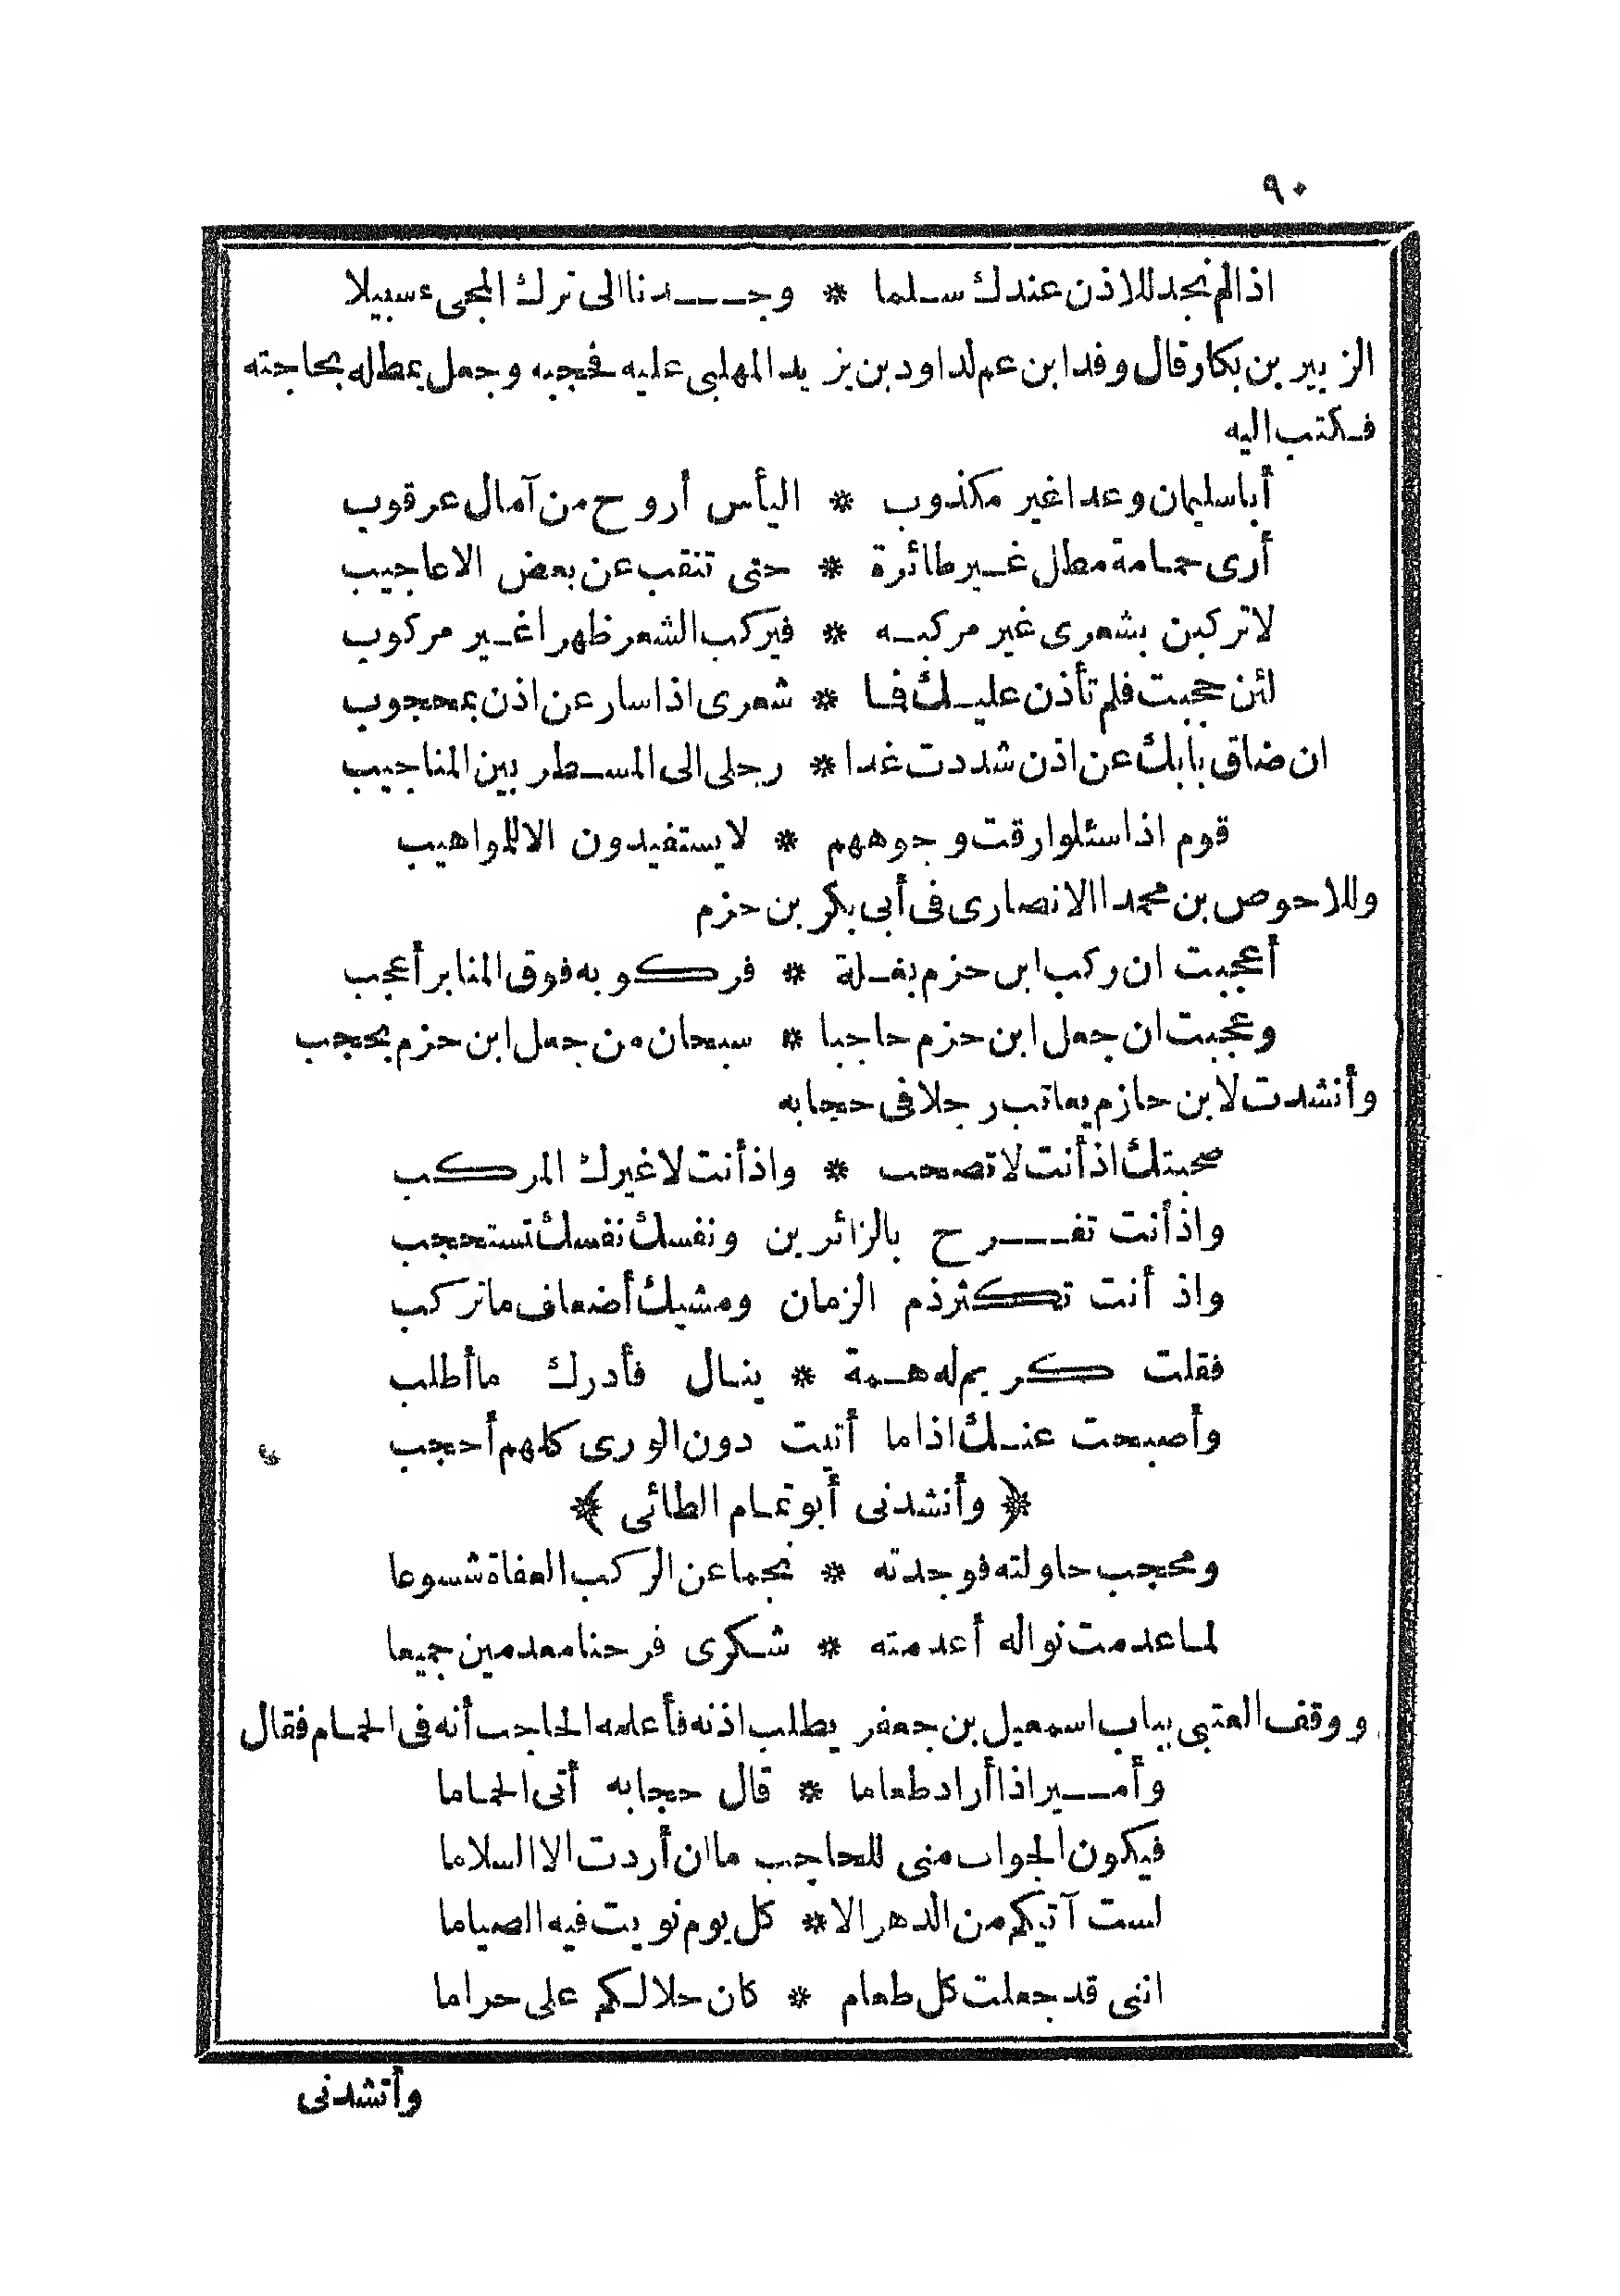 ٩٠
اذا لم نجد للاذن عندك سلما * وجدنا الى ترك المجىء سبيلا
الزبير بن بكار قال وفد ابن عم لداود بن يزيد المهلبى عليه فحجبه وجعل يمطله بحاجته
فكتب اليه
أبا سليمان وعدا غير مكذوب * اليأس أروح من آمال عرقوب
أرى حمامة مطل غير طائرة * حتى تنقب عن بعض الاعاجيب
لا تركبن بشعرى غير مركبه * فيركب الشعر ظهرا غير مركوب
لئن حجبت فلم تأذن عليك فما * شعرى اذا سار عن اذن بمحجوب
ان ضاق بابك عن اذن شددت غدا * رجلى الى المسطر بين المناجيب
قوم اذا سئلوا رقت وجوههم * لا يستفيدون الا للمواهيب
وللاحوص بن محمد الانصارى فى أبى بكر بن حزم
أعجبت ان ركب ابن حزم بغلة * فركوبه فوق المنابر أعجب
وعجبت ان جعل ابن حزم حاجبا * سبحان من جعل ابن حزم يحجب
وأنشدت لابن حازم يعاتب رجلا فى حجابه
صحبتك اذ أنت لا تصحب * واذ أنت لا غيرك المركب
واذ أنت تفرح بالزائرين ونفسك نفسك تستحجب
واذ أنت تكثر ذم الزمان ومشيك أضعاف ما تركب
فقلت كريم له همة * ينال فأدرك ما أطلب
وأصبحت عنك اذا ما أتيت دون الورى كلهم أحجب
﴿ وأنشدنى أبو تمام الطائى ﴾
ومحجب حاولته فوجدته * نجما عن الركب العفاة شسوعا
لما عدمت نواله أعدمته * شكرى فرحنا معدمين جميعا
ووقف العتبى بباب اسمعيل بن جعفر يطلب اذنه فأعلمه الحاجب أنه فى الحمام فقال
وأمير اذا أراد طعاما * قال حجابه أتى الحماما
فيكون الجواب منى للحاجب ما ان أردت الا السلاما
لست آتيكم من الدهر الا * كل يوم نويت فيه الصياما
اننى قد جعلت كل طعام * كان حلالكم على حراما
وأنشدنى